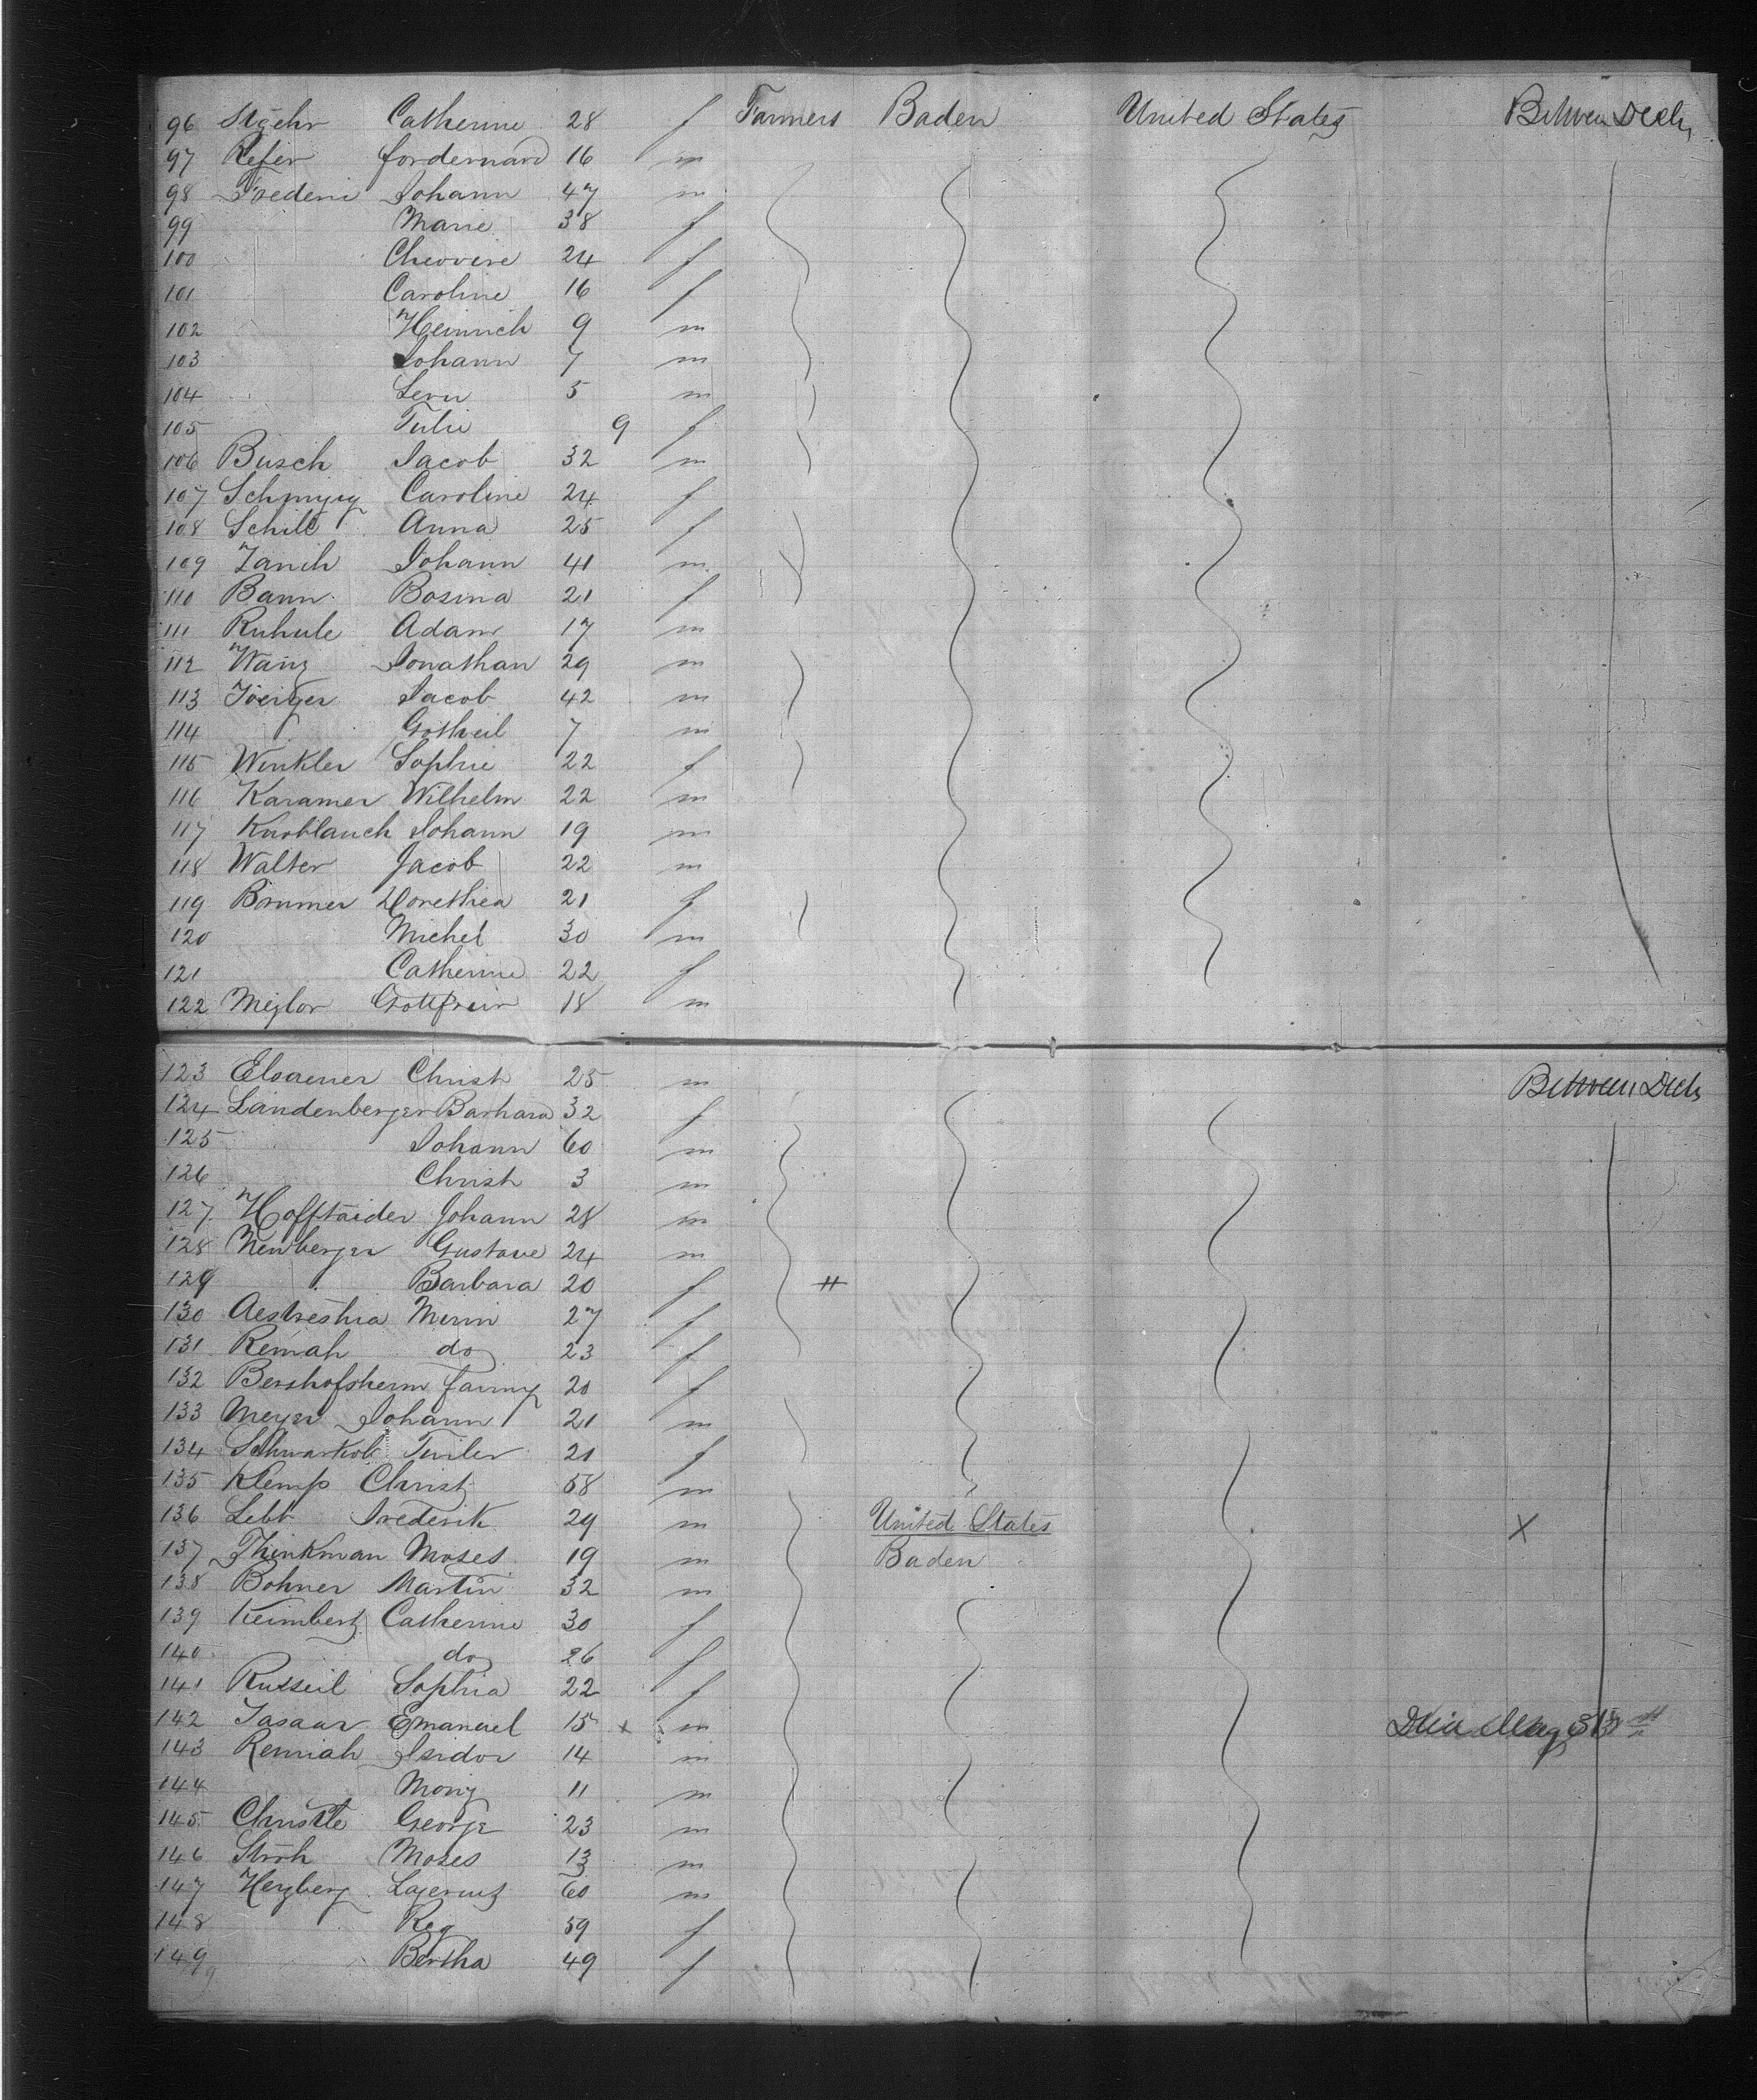 96 Stoehr Catherine 28 f Farmers Baden United States Between Decks
97 Refer 16 m
98 Frederic Johann 47 m
99 Marie 38 f
100 24 f
101 Caroline 16 f
102 Heinrich 9 m
103 Johann 7 m
104 5 m
105 Julie 9 f
106 Busch Jacob 32 m
107 Caroline 24 f
108 Schill Anna 25 f
109 Zanch Johann 41 m
110 Bann Bosina 21 f
111 Ruhule Adam 17 m
112 Wanz Jonathan 29 m
113 Joerger Jacob 42 m
114 Gotheil 7 m
115 Winkler Sophie 22 f
116 Karamer Wilhelm 22 m
117 Knoblauch Johann 19 m
118 Walter Jacob 22 m
119 Brumer Dorethea 21 f
120 Michel 30 m
121 Catherine 22 f
122 Mezlor 18 m
123 Elsaener Christ 25 m Between Decks
124 Landenberger Barbara 32 f
125 Johann 60 m
126 Christ 3 m
127 Hofftaider Johann 28 m
128 Newberger Gustave 24 m
129 Barbara 20 f
130 Mirin 27 f
131 Remah do 23 f
132 Fanny 20 f
133 Meyer Johann 21 m
134 21 f
135 Klemp Christ 58 m
136 Lebt Frederik 29 m United States X
137 Thinkman Moses 19 m Baden
138 Bohner Martin 32 m
139 Keimbert Catherine 30 f
140 do 26 f
141 Russeil Sophia 22 f
142 Jasaar Emanuel 15 x m Died May 31st
143 Remiah Isidor 14 m
144 11 m
145 Christle George 23 m
146 Stroh Moses 13 m
147 Herzberg 60 m
148 59 f
149 Bertha 49 f